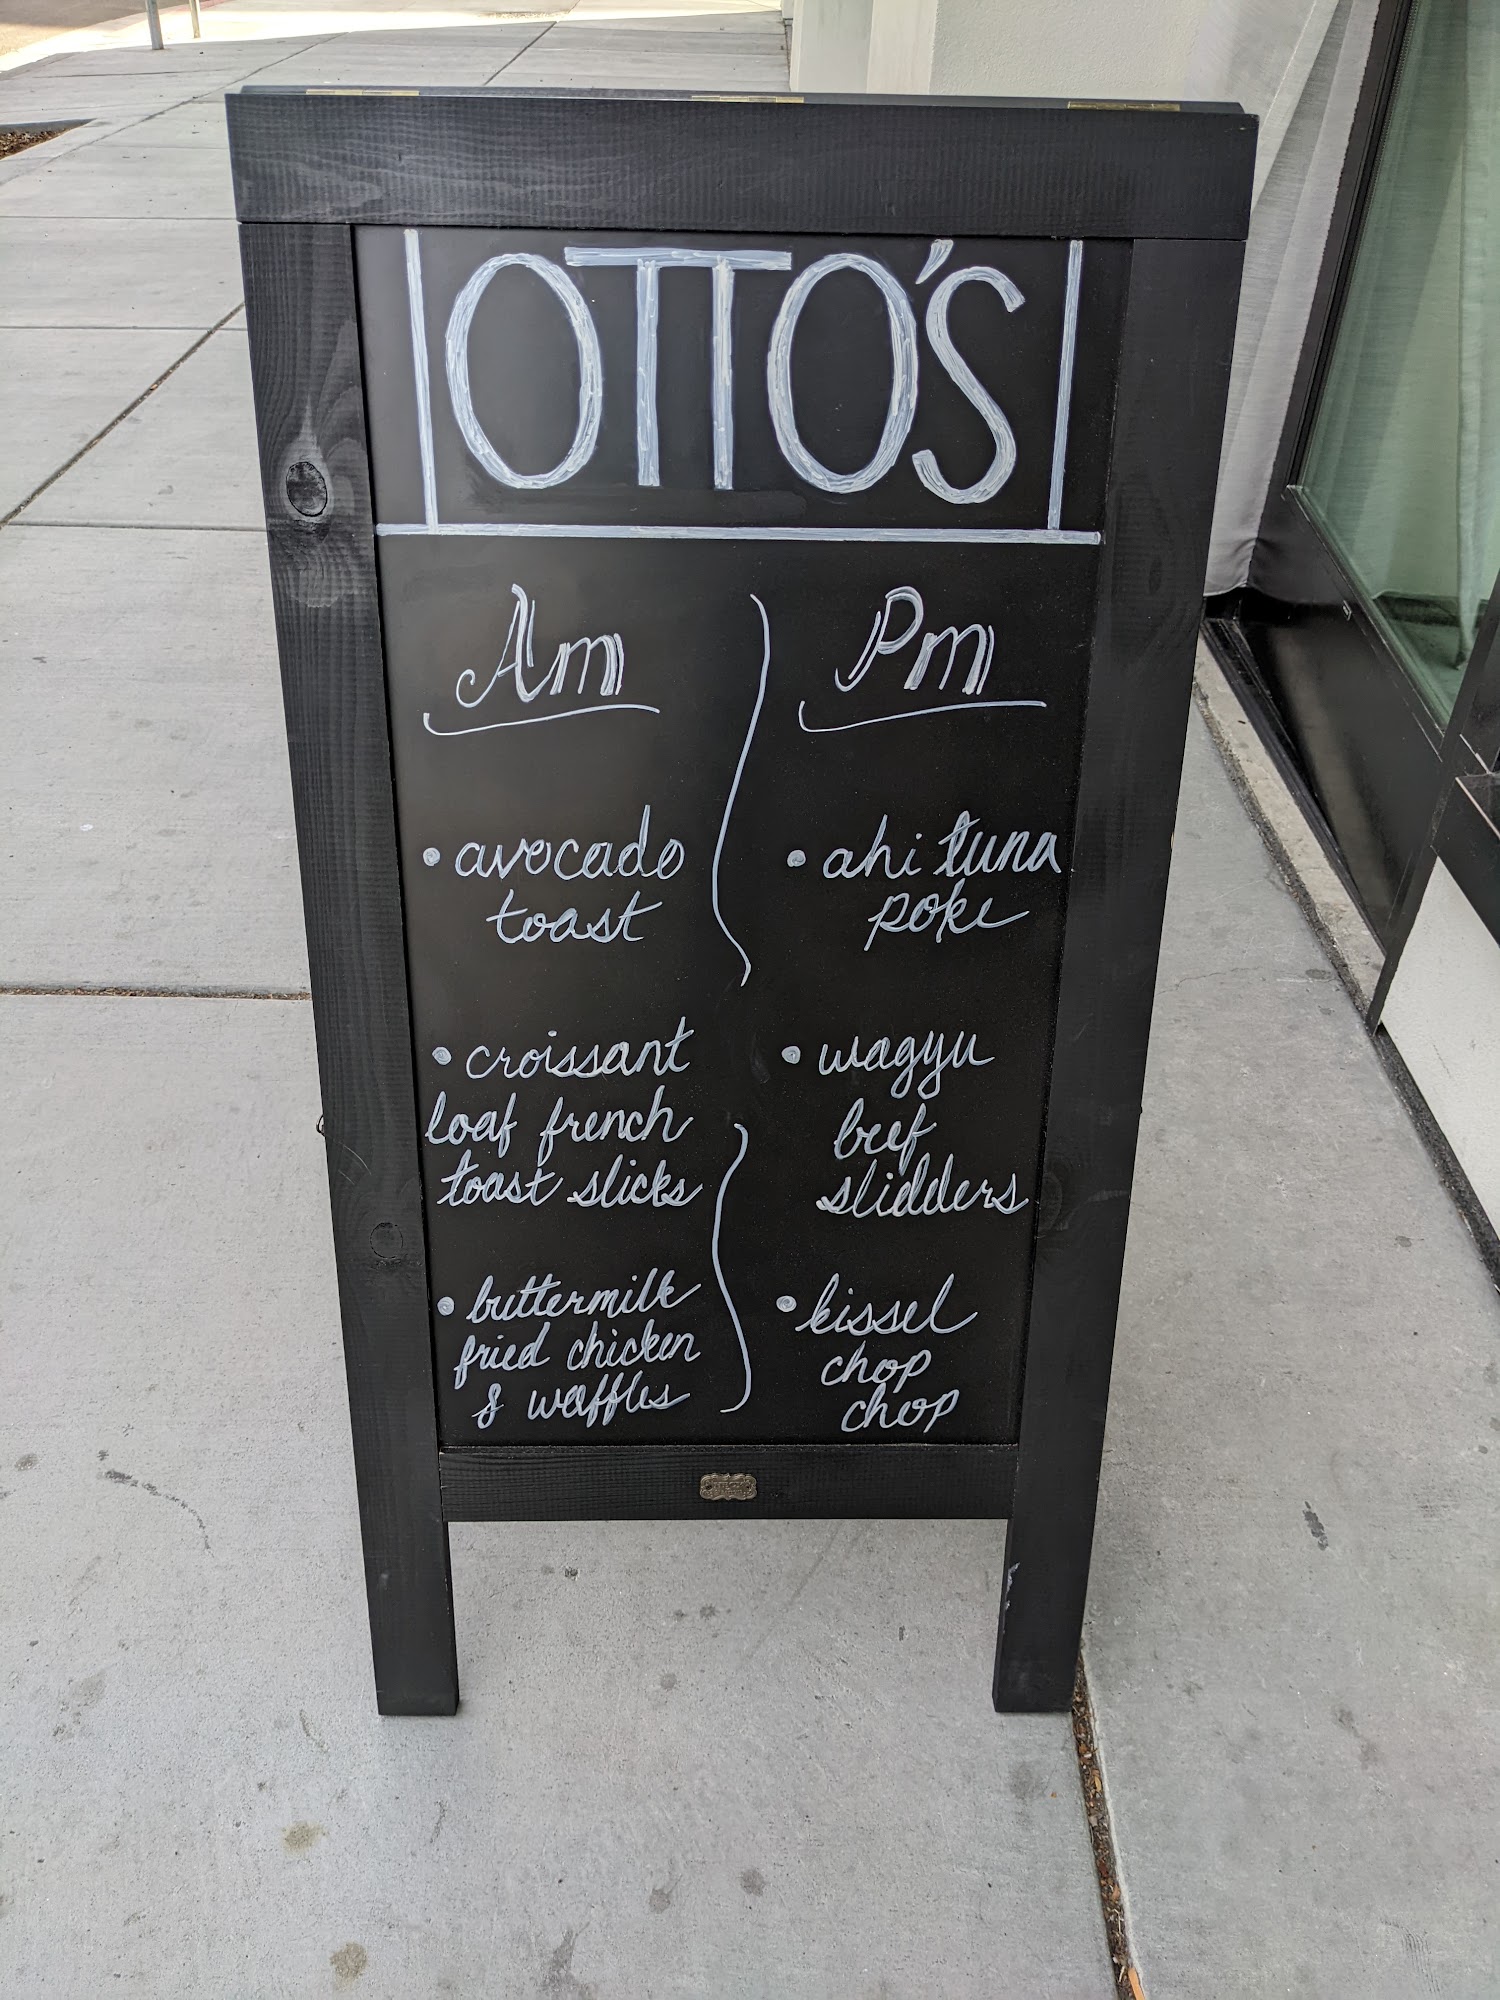 OTTO'S
Am
• avocado
toast
• croissant
loaf french
toast slicks
• buttermilk
fried chicken
& waffles
Pm
• ahi tuna
poke
• wagyu
beef
slidders
• kissel
chop
chop